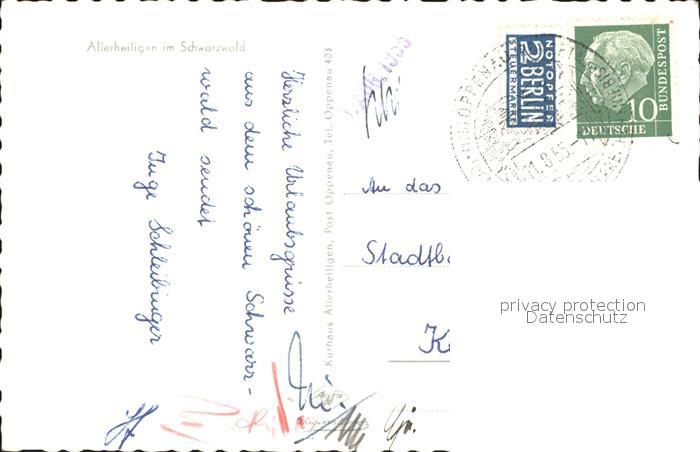 Allerheiligen im Schwarzwald
Herzliche Urlaubsgrüsse
aus dem schönen Schwarz-
wald sendet
Inge Schleibinger
Kurhaus Allerheiligen, Post Oppenau, Tel. Oppenau 403
NOTOPFER
2 BERLIN
STEUERMARKE
10
DEUTSCHE
BUNDESPOST
OPPENAU
An das
Stadtb
K
privacy protection
Datenschutz